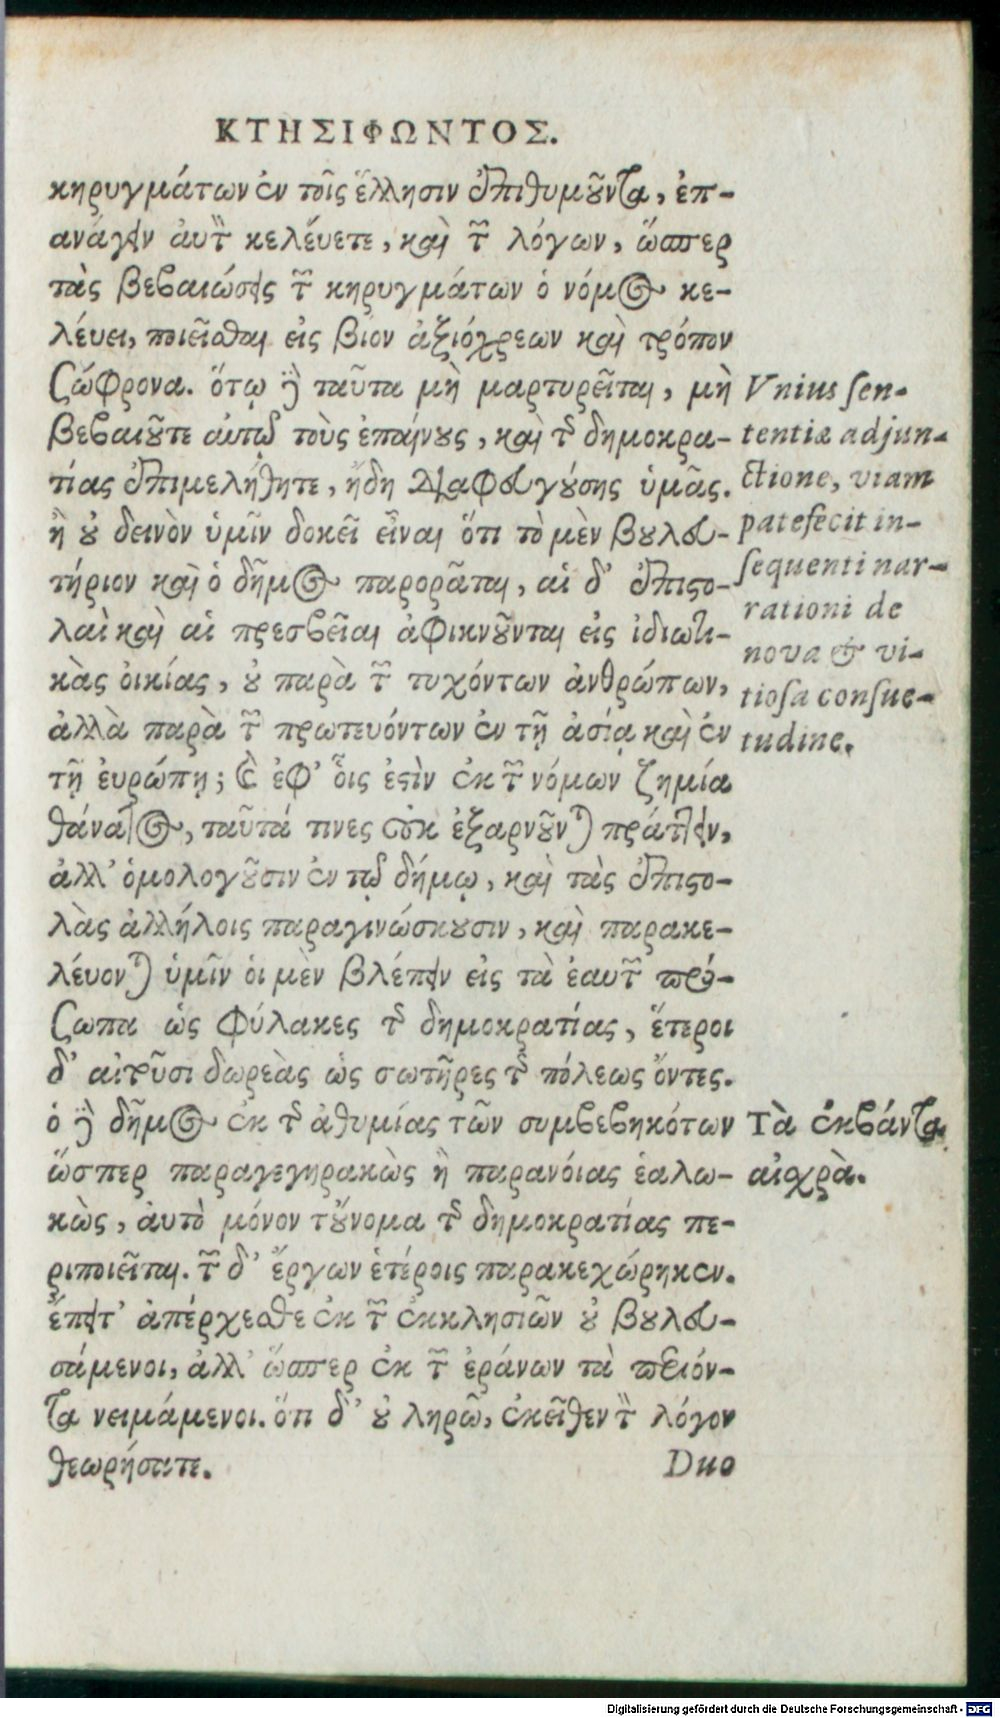 ΚΤΗΣΙΦΩΝΤΟΣ.
κηρυγμάτων ἐν τοῖς ἕλλησιν ἐπιθυμοῦντα, ἐπ-
ανάγειν αὐτὸν κελεύετε, καὶ τῶν λόγων, ὥσπερ
τὰς βεβαιώσεις τῶν κηρυγμάτων ὁ νόμος κε-
λέυει, ποιεῖσθαι εἰς βίον ἀξιόχρεων καὶ τρόπον
σώφρονα. ὅτῳ δὲ ταῦτα μὴ μαρτυρεῖται, μὴ
βεβαιοῦτε αὐτῷ τοὺς ἐπαίνους, καὶ τῆς δημοκρα-
τίας ἐπιμελήθητε, ἤδη διαφευγούσης ὑμᾶς.
ἢ οὐ δεινὸν ὑμῖν δοκεῖ εἶναι ὅτι τὸ μὲν βουλευ-
τήριον καὶ ὁ δῆμος παρορᾶται, αἱ δ' ἐπιστο-
λαὶ καὶ αἱ πρεσβεῖαι ἀφικνοῦνται εἰς ἰδιωτι-
κὰς οἰκίας, οὐ παρὰ τῶν τυχόντων ἀνθρώπων,
ἀλλὰ παρὰ τῶν πρωτευόντων ἐν τῇ ἀσίᾳ καὶ ἐν
τῇ ἐυρώπῃ; καὶ ἐφ' οἷς ἐστὶν ἐκ τῶν νόμων ζημία
θάνατος, ταῦτά τινες οὐκ ἐξαρνοῦνται πράττειν,
ἀλλ' ὁμολογοῦσιν ἐν τῷ δήμῳ, καὶ τὰς ἐπιστο-
λὰς ἀλλήλοις παραγινώσκουσιν, καὶ παρακε-
λέυονται ὑμῖν οἱ μὲν βλέπειν εἰς τὰ ἑαυτῶν πρό-
σωπα ὡς φύλακες τῆς δημοκρατίας, ἕτεροι
δ' αἰτοῦσι δωρεὰς ὡς σωτῆρες τῆς πόλεως ὄντες.
ὁ δὲ δῆμος ἐκ τῆς ἀθυμίας τῶν συμβεβηκότων
ὥσπερ παραγεγηρακὼς ἢ παρανόιας ἑαλω-
κὼς, ἀυτὸ μόνον τοὔνομα τῆς δημοκρατίας πε-
ριποιεῖται. τῶν δ' ἔργων ἑτέροις παρακεχώρηκεν.
ἔπειτ' ἀπέρχεσθε ἐκ τῶν ἐκκλησιῶν οὐ βουλευ-
σάμενοι, ἀλλ' ὥσπερ ἐκ τῶν ἐράνων τὰ περιόν-
τα νειμάμενοι. ὅτι δ' οὐ ληρῶ, ἐκεῖθεν τὸν λόγον
θεωρήσατε.
Duo
Vnius sen-
tentiæ adjun-
ctione, viam
patefecit in-
sequenti nar-
rationi de
nova & vi-
tiosa consue-
tudine.
Τὰ ἐκβάντα
αἰσχρὰ.
Digitalisierung gefördert durch die Deutsche Forschungsgemeinschaft - DFG